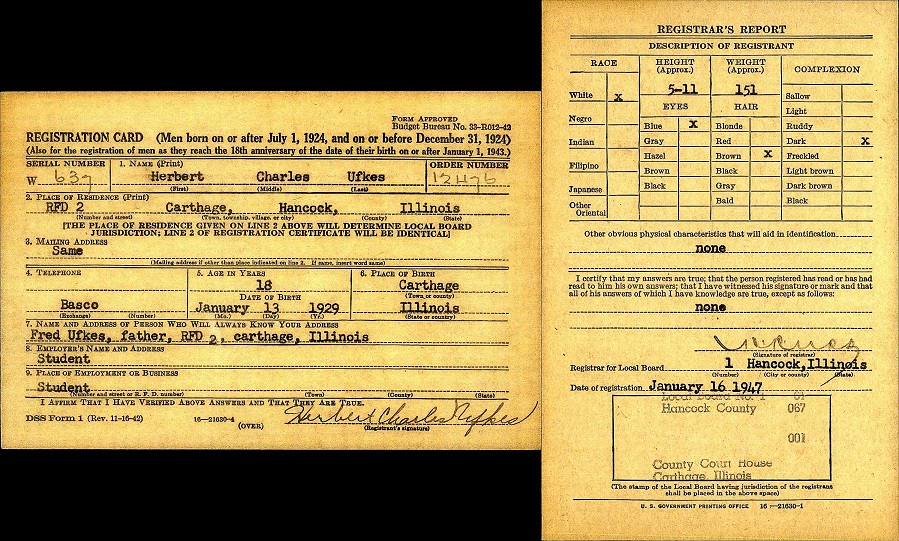 FORM APPROVED
Budget Bureau No. 33-R012-42
REGISTRATION CARD (Men born on or after July 1, 1924, and on or before December 31, 1924)
(Also for the registration of men as they reach the 18th anniversary of the date of their birth on or after January 1, 1943.)
SERIAL NUMBER 1. NAME (Print) ORDER NUMBER
W 637 Herbert Charles Ufkes 12476
(First) (Middle) (Last)
2. PLACE OF RESIDENCE (Print)
RFD 2 Carthage, Hancock, Illinois
(Number and street) (Town, township, village, or city) (County) (State)
[THE PLACE OF RESIDENCE GIVEN ON LINE 2 ABOVE WILL DETERMINE LOCAL BOARD
JURISDICTION; LINE 2 OF REGISTRATION CERTIFICATE WILL BE IDENTICAL]
3. MAILING ADDRESS
Same
(Mailing address if other than place indicated on line 2. If same, insert word same)
4. TELEPHONE 5. AGE IN YEARS 6. PLACE OF BIRTH
18 Carthage
DATE OF BIRTH (Town or county)
Basco January 13 1929 Illinois
(Exchange) (Number) (Mo.) (Day) (Yr.) (State or country)
7. NAME AND ADDRESS OF PERSON WHO WILL ALWAYS KNOW YOUR ADDRESS
Fred Ufkes, father, RFD 2, carthage, Illinois
8. EMPLOYER'S NAME AND ADDRESS
Student
9. PLACE OF EMPLOYMENT OR BUSINESS
Student
(Number and street or R. F. D. number) (Town) (County) (State)
I AFFIRM THAT I HAVE VERIFIED ABOVE ANSWERS AND THAT THEY ARE TRUE.
DSS Form 1 (Rev. 11-16-42) 16—21630-4 (OVER) Herbert Charles Ufkes
(Registrant's signature)
REGISTRAR'S REPORT
DESCRIPTION OF REGISTRANT
RACE HEIGHT (Approx.) WEIGHT (Approx.) COMPLEXION
White x 5-11 151 Sallow
EYES HAIR Light
Negro Blue x Blonde Ruddy
Indian Gray Red Dark x
Hazel Brown x Freckled
Filipino Brown Black Light brown
Japanese Black Gray Dark brown
Other Oriental Bald Black
Other obvious physical characteristics that will aid in identification
none
I certify that my answers are true; that the person registered has read or has had
read to him his own answers; that I have witnessed his signature or mark and that
all of his answers of which I have knowledge are true, except as follows:
none
(Signature of registrar)
Registrar for Local Board 1 Hancock, Illinois
(Number) (City or county) (State)
Date of registration January 16 1947
Local Board No. 1
Hancock County 067
001
County Court House
Carthage, Illinois
(The stamp of the Local Board having jurisdiction of the registrant
shall be placed in the above space)
U. S. GOVERNMENT PRINTING OFFICE 16—21630-1